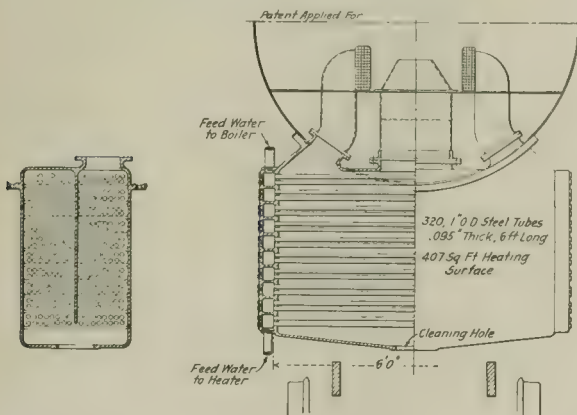 Patent Applied For
Feed Water
to Boiler
320, 1"O D Steel Tubes
.095" Thick, 6 ft Long
407 Sq Ft Heating
Surface
Cleaning Hole
Feed Water
to Heater
6'0"